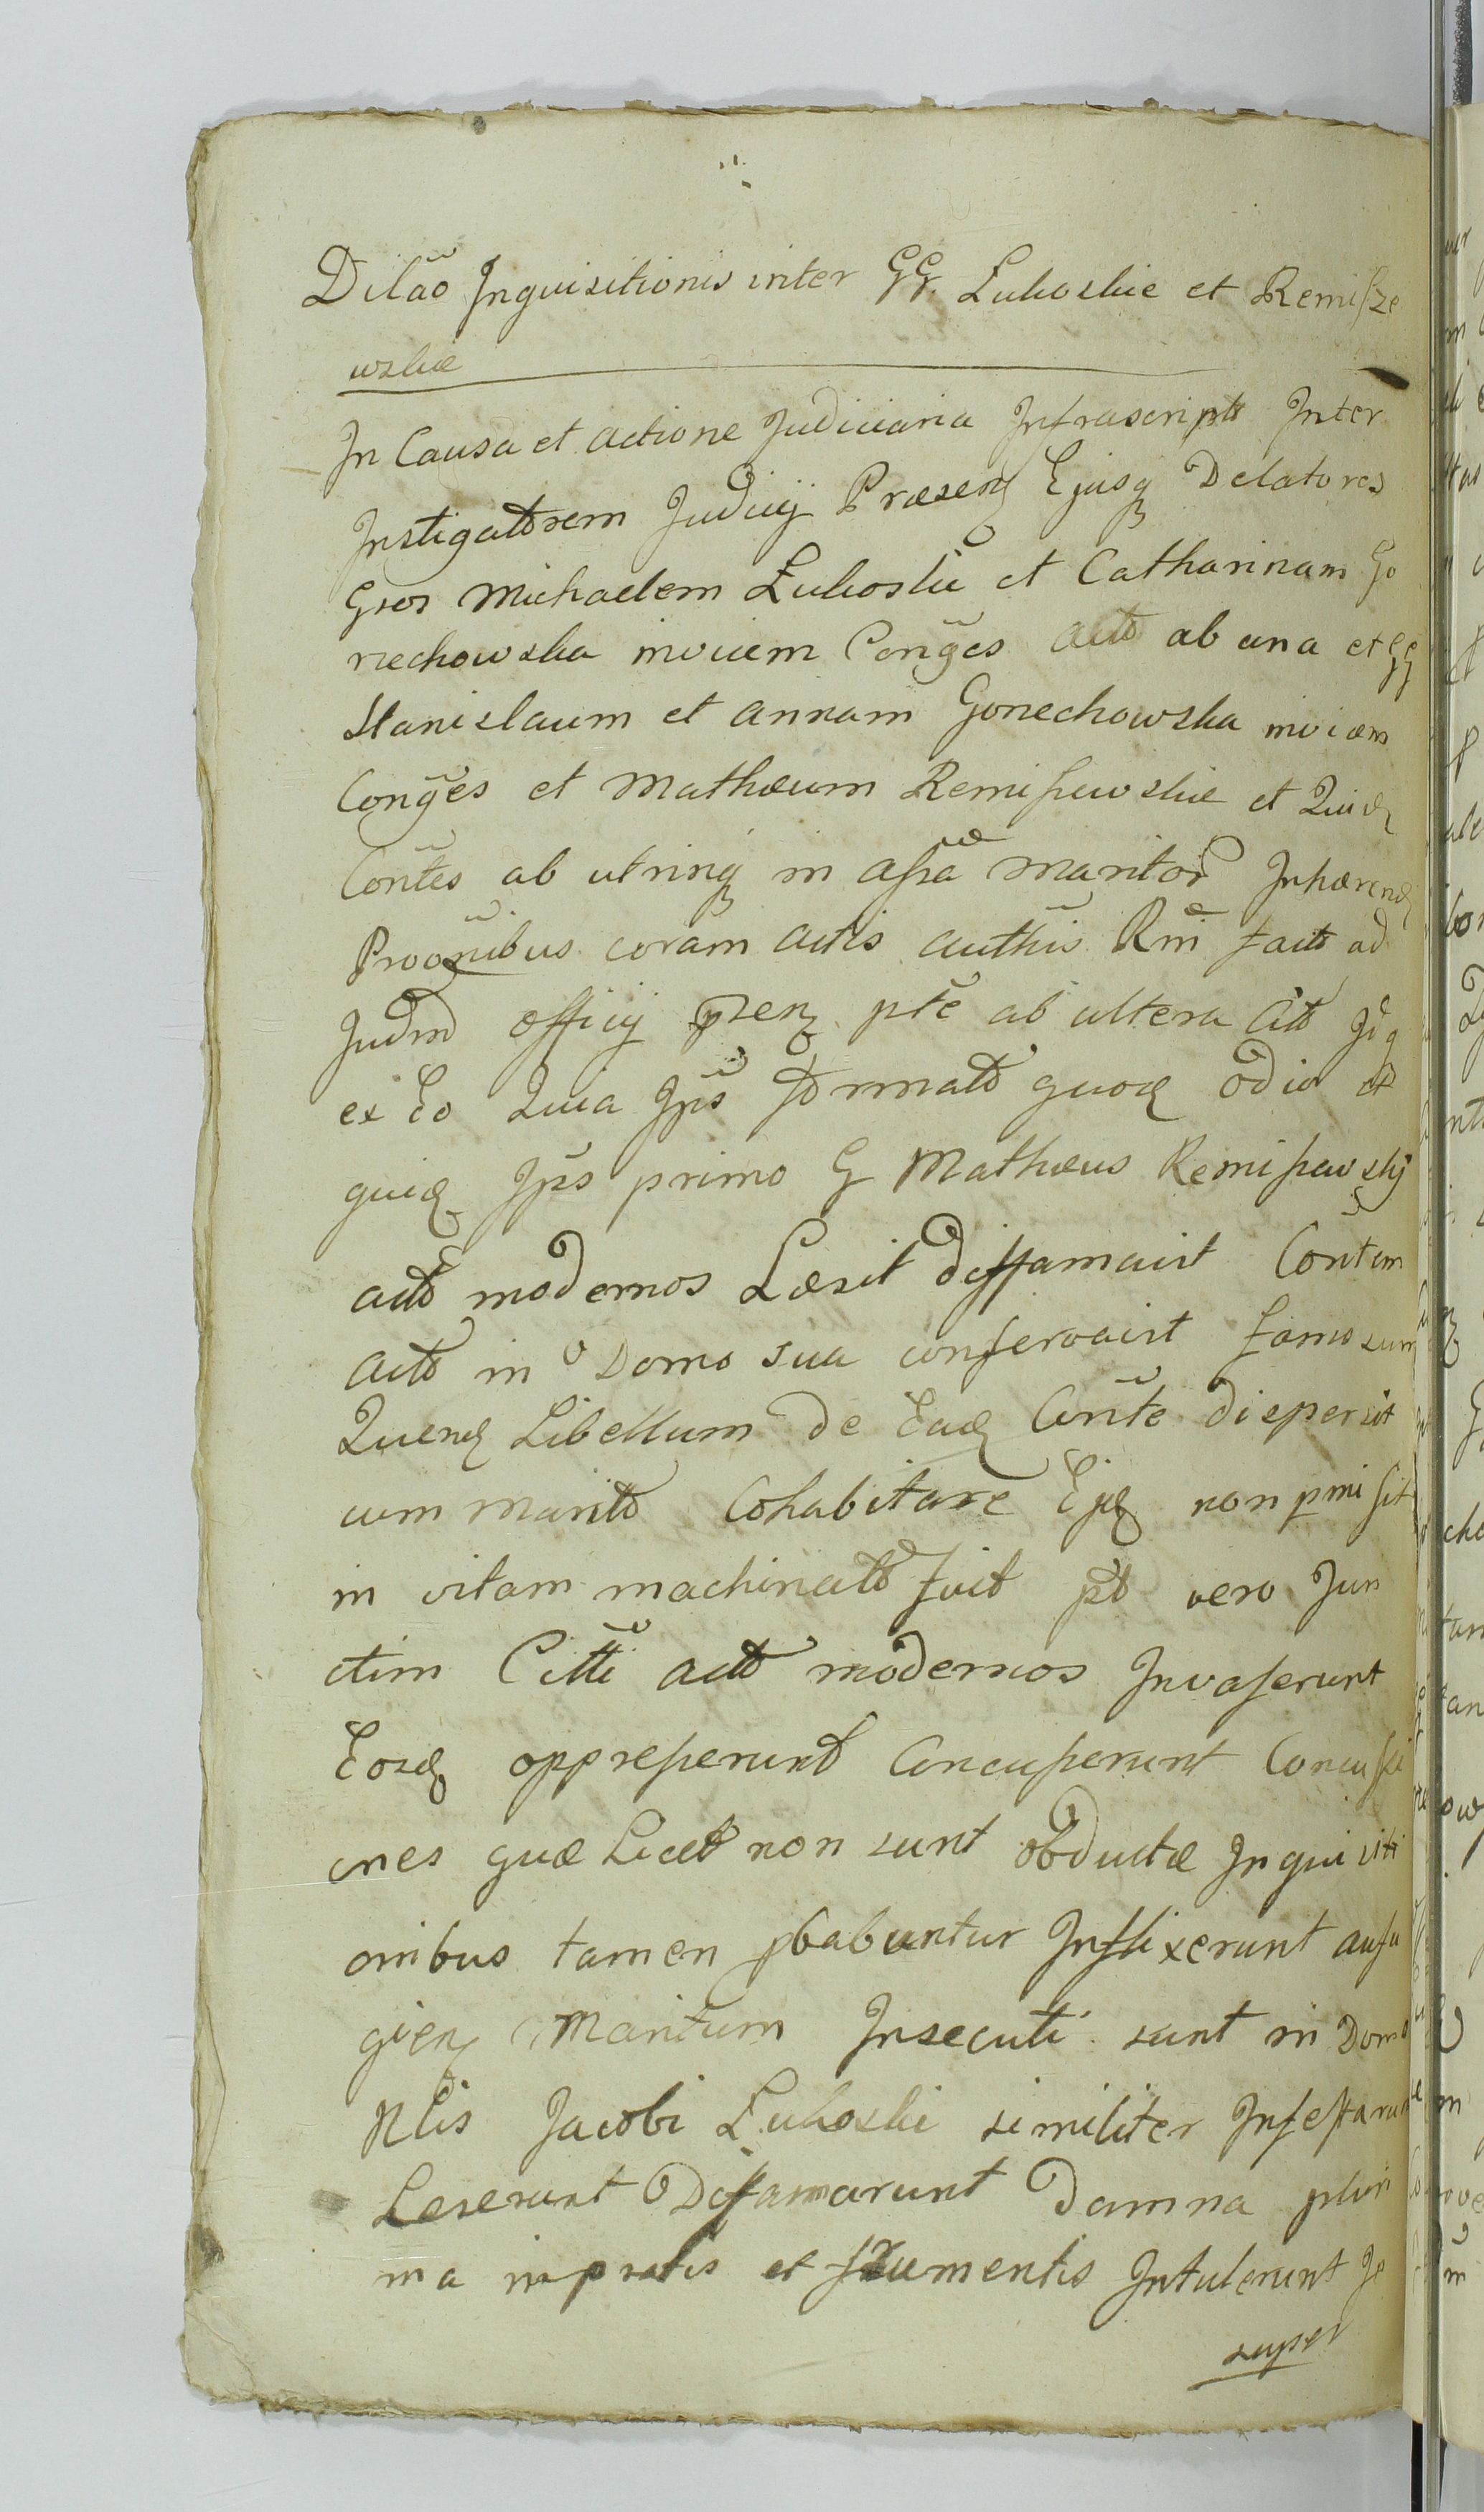 Dilão Inquisitionis inter GG. Lukoskie et Remisze
wskie
In Causa et actione Judiciaria Infrascripta Inter
Instigatorem Judicij Præsen Ejusq Delatores
Gsos Michaelem Łukoski et Catharinam Go
rzechowska invicem Conges act ab una et GG
Stanislaum et Annam Gorzechowska invicem
Conges et Mathæum Remiszewskie et Quid
Contes ab utrinq in assa maritor Inhæren
Proonibus coram actis authis Rni fact ad
Judm officij pzen pte ab ultera Citt
ex Eo Quia Ips quoq odio et
quid Ips primo G Mathæus Remiszewskj
act modernos Læsit deffamavit Contem
act in Domo sua conservavit famosum
Quend Libellum de Ead Conte dispersit
cum marito Cohabitare Ejd non pmisit
in vitam machinatt fuit pt vero Jun
ctim Citti act modernos Invaserunt
Eosd oppresserunt Concusserunt Concussi
ones quæ Licet non sunt obductæ Inquisiti
onibus tamen pbabuntur Inflixerunt aufu
gien Maritum Insecuti sunt in Domo
Nlis Jacobi Lukoski similiter Infestarunt
Leserunt Deffamarunt Damna pluri
ma in pratis et frumentis Intulerunt
super